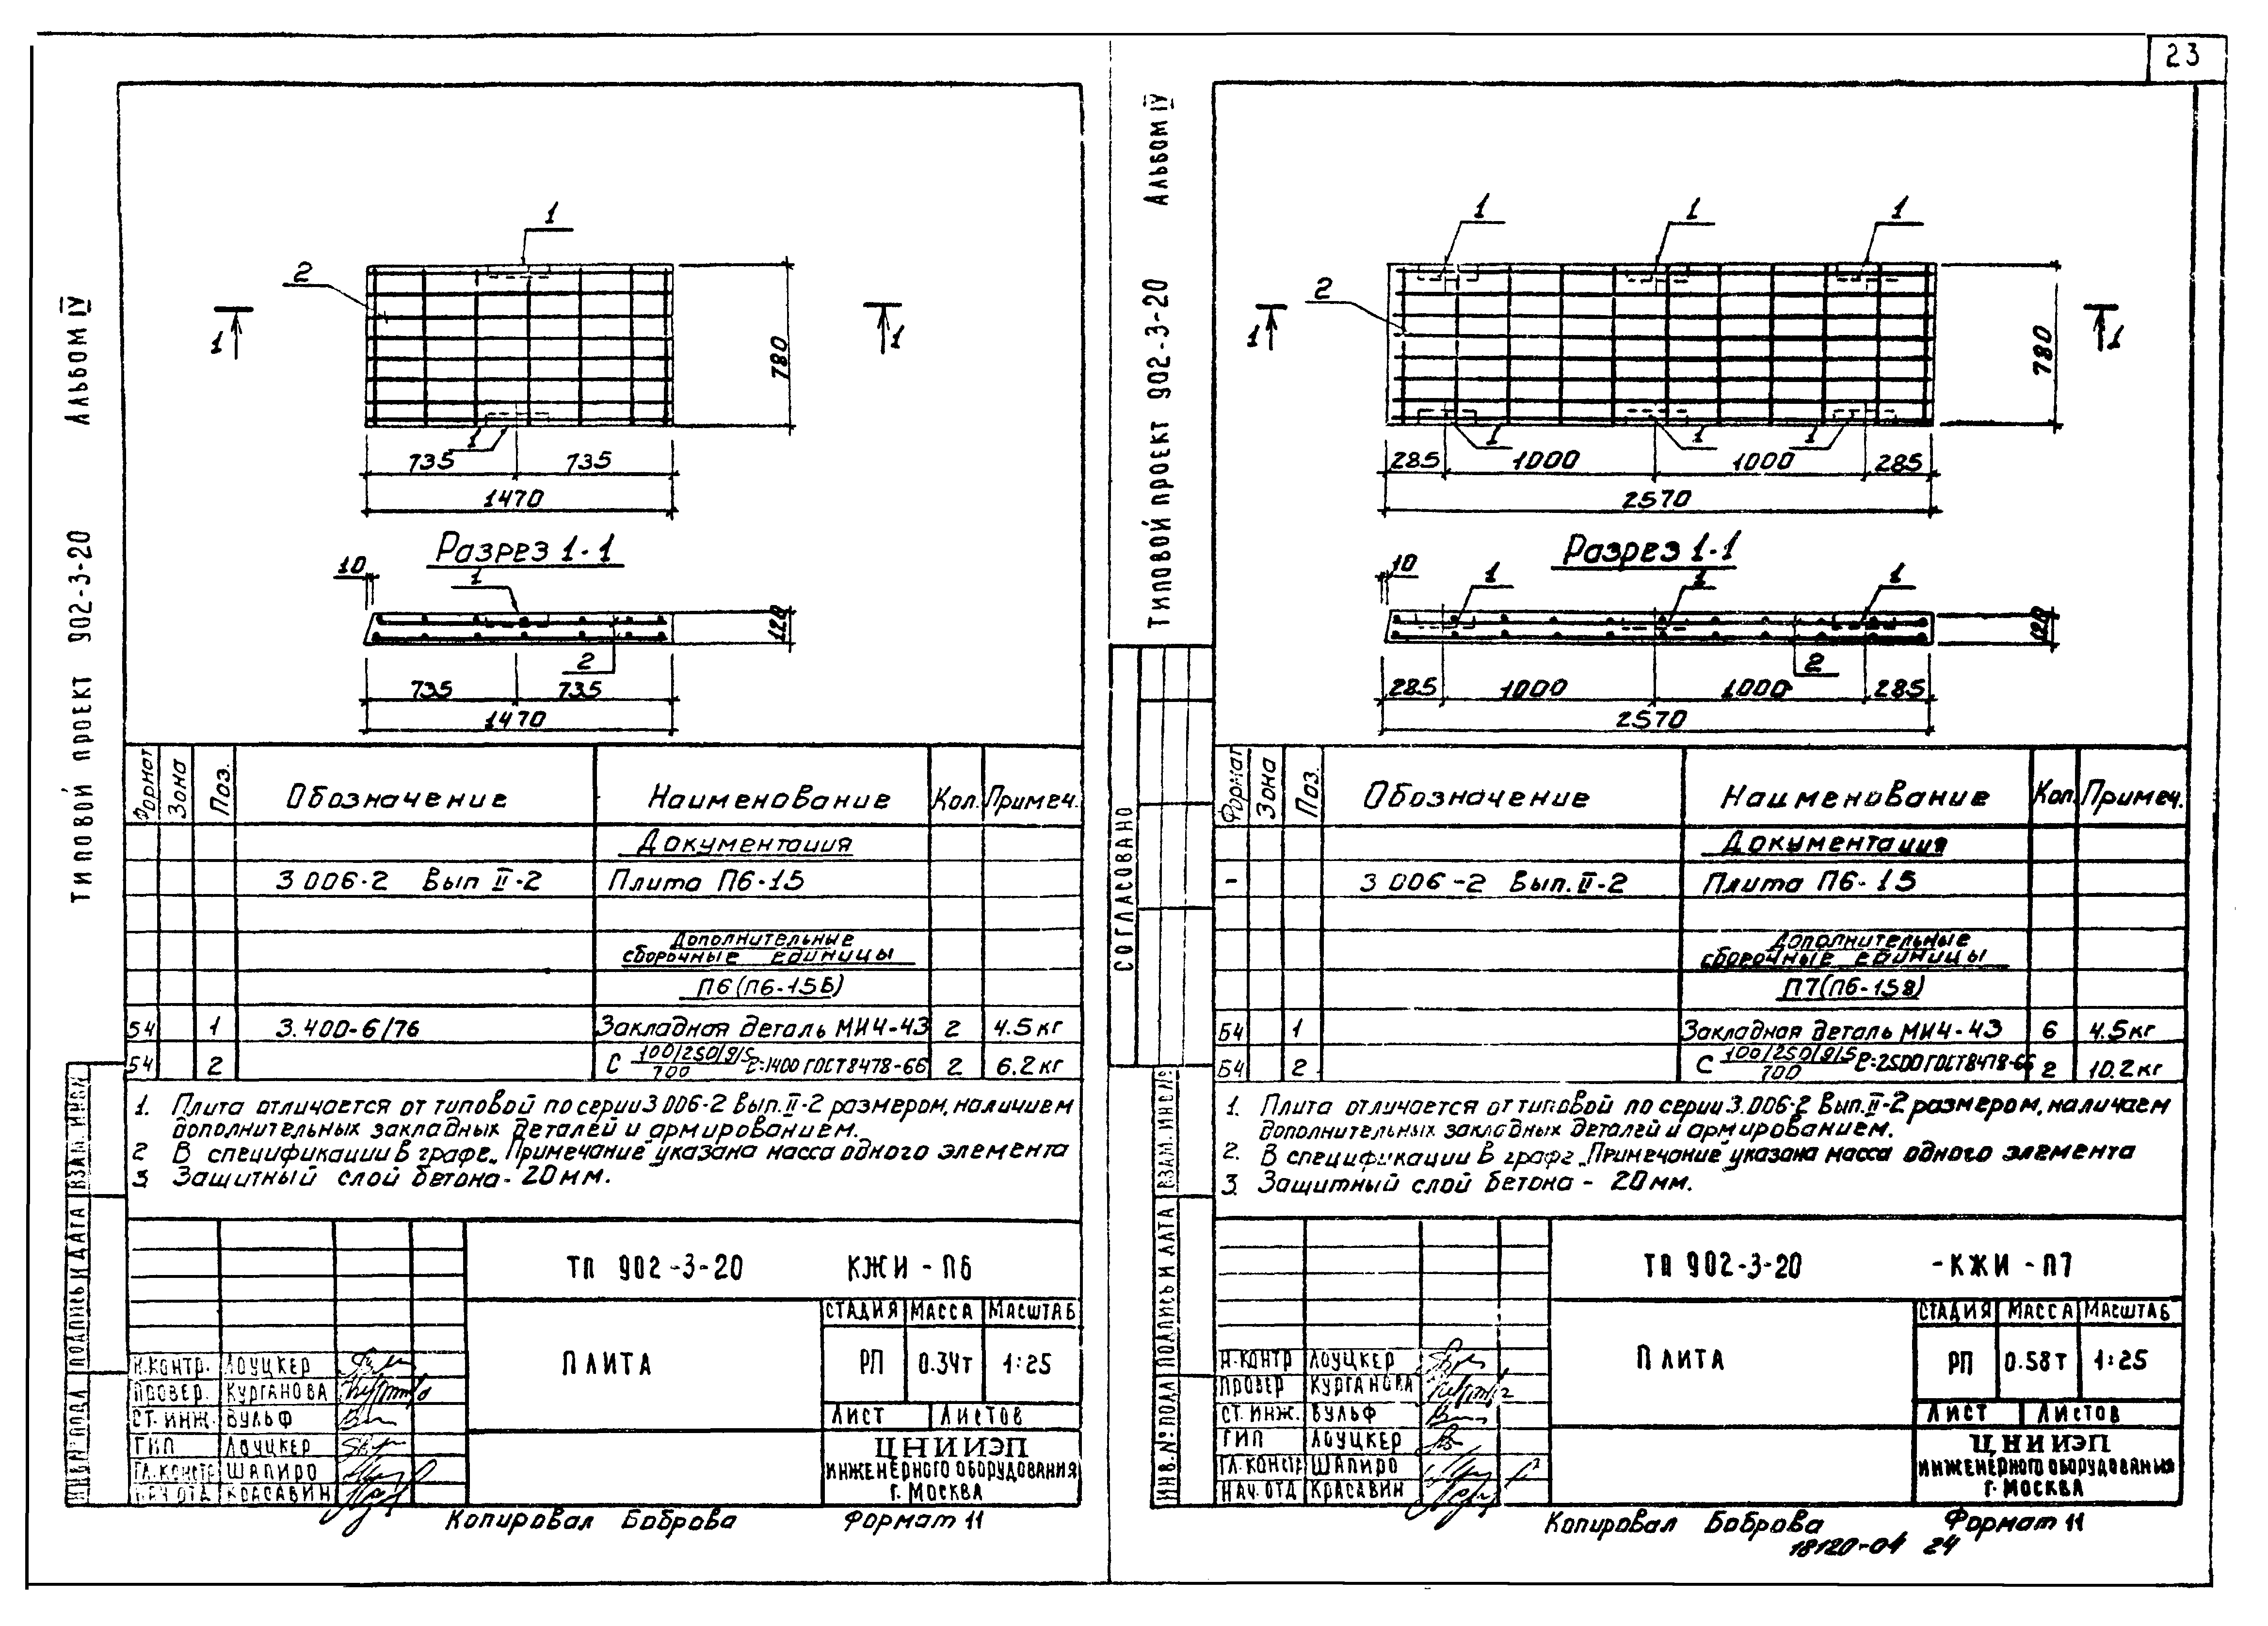 23
Типовой проект 902-3-20 Альбом IV
1
2
1
1
780
1
735 735
1470
Разрез 1-1
10
1
120
2
735 735
1470
Формат Зона Поз. Обозначение Наименование Кол. Примеч.
Документация
3 006-2 Вып II-2 Плита П6-15
Дополнительные
сборочные единицы
П6 (П6-15Б)
Б4 1 3.400-6/76 Закладная деталь МИ4-43 2 4.5кг
Б4 2 С 100/250/9/5 / 700 ℓ=1400 ГОСТ 8478-66 2 6.2кг
1. Плита отличается от типовой по серии 3 006-2 Вып. II-2 размером, наличием
дополнительных закладных деталей и армированием.
2 В спецификации в графе „Примечание" указана масса одного элемента
3 Защитный слой бетона - 20мм.
ТП 902-3-20 КЖИ - П6
ПЛИТА
СТАДИЯ МАССА МАСШТАБ
РП 0.34т 1:25
ЛИСТ ЛИСТОВ
ЦНИИЭП
ИНЖЕНЕРНОГО ОБОРУДОВАНИЯ
г. МОСКВА
Н.КОНТР. ЛОУЦКЕР
ПРОВЕР. КУРГАНОВА
СТ. ИНЖ. ВУЛЬФ
ГИП ЛОУЦКЕР
ГЛ.КОНСТР ШАПИРО
НАЧ ОТД КРАСАВИН
ИНВ.№ ПОДЛ ПОДПИСЬ И ДАТА ВЗАМ. ИНВ№
Копировал Боброва Формат 11
Типовой проект 902-3-20 Альбом IV
1 1 1
2
1
1
780
1 1 1
285 1000 1000 285
2570
Разрез 1-1
10
1 1 1
120
2
285 1000 1000 285
2570
СОГЛАСОВАНО
Формат Зона Поз. Обозначение Наименование Кол. Примеч.
Документация
- 3 006-2 Вып. II-2 Плита П6-15
Дополнительные
сборочные единицы
П7 (П6-15в)
Б4 1 Закладная деталь МИ4-43 6 4.5кг
Б4 2 С 100/250/9/5 / 700 ℓ=2500 ГОСТ 8478-66 2 10.2кг
1. Плита отличается от типовой по серии 3.006-2 Вып. II-2 размером, наличаем
дополнительных закладных деталей и армированием.
2. В спецификации в графе „Примечание" указана масса одного элемента
3. Защитный слой бетона - 20мм.
ТП 902-3-20 -КЖИ - П7
ПЛИТА
СТАДИЯ МАССА МАСШТАБ
РП 0.58т 1:25
ЛИСТ ЛИСТОВ
ЦНИИЭП
ИНЖЕНЕРНОГО ОБОРУДОВАНИЯ
г. МОСКВА
Н.КОНТР ЛОУЦКЕР
ПРОВЕР КУРГАНОВА
СТ. ИНЖ. ВУЛЬФ
ГИП ЛОУЦКЕР
ГЛ.КОНСТР ШАПИРО
НАЧ. ОТД КРАСАВИН
ИНВ.№ ПОДЛ ПОДПИСЬ И ДАТА ВЗАМ. ИНВ.№
Копировал Боброва Формат 11
18120-04 24